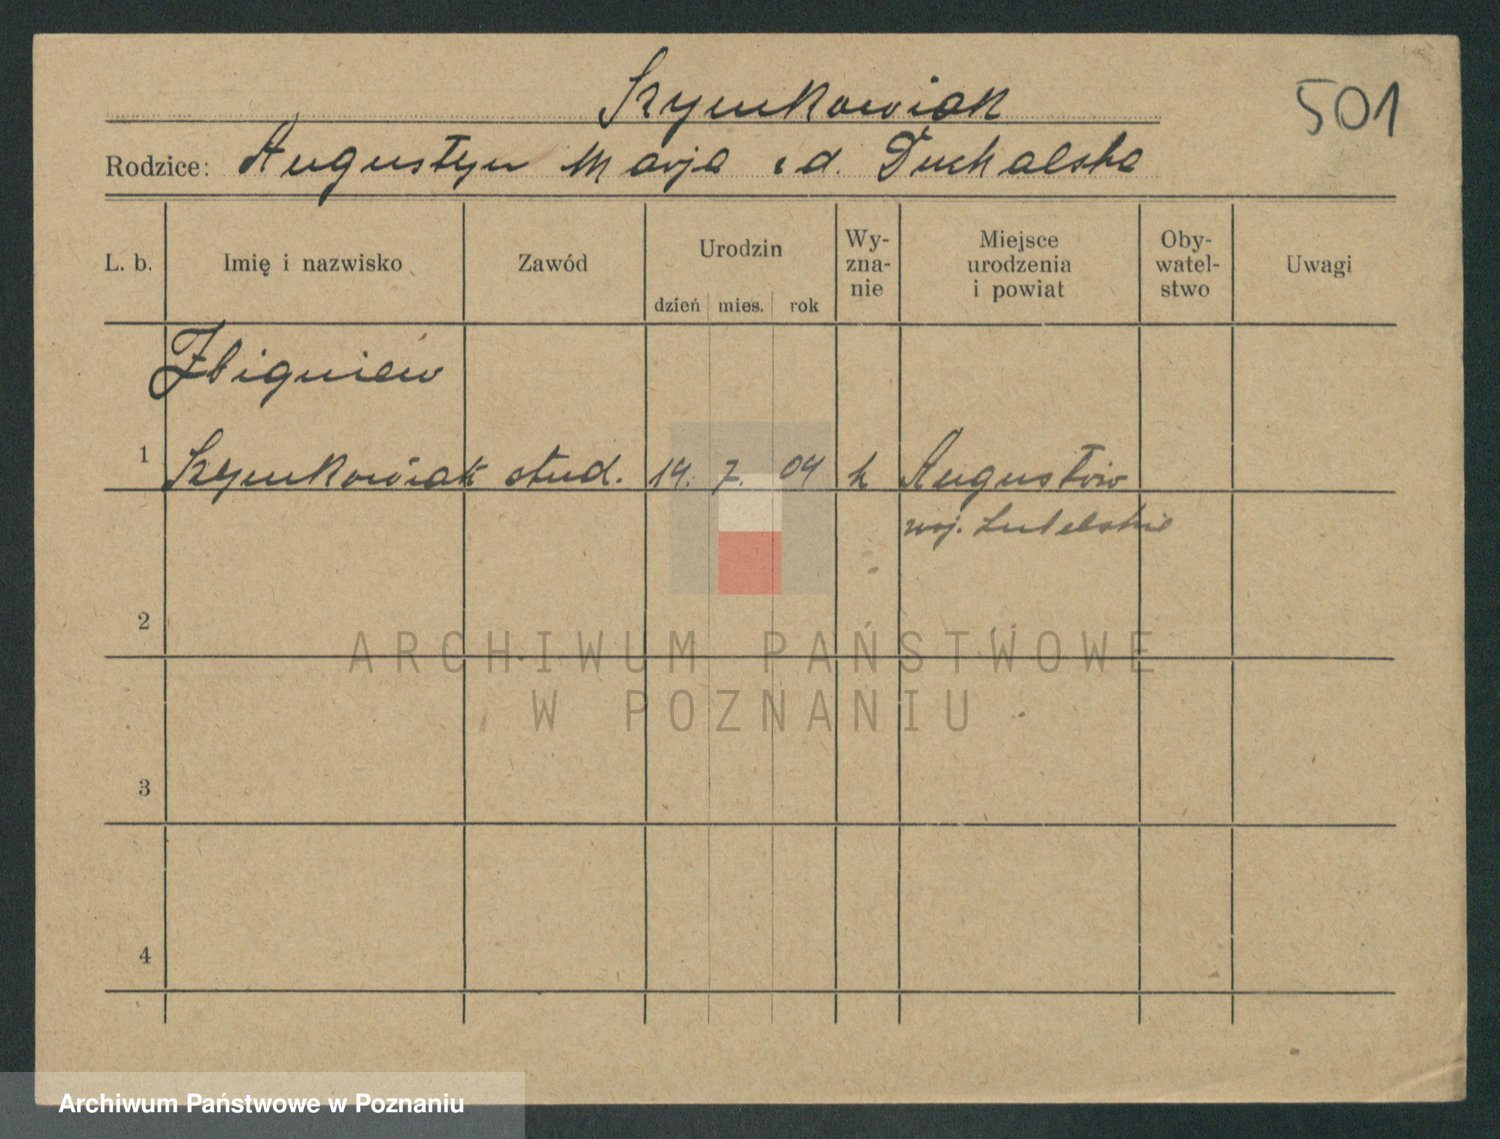 Szymkowiak
501
Rodzice: Augustyn Marja z d. Duchalska
L. b. Imię i nazwisko Zawód Urodzin dzień mies. rok Wy-zna-nie Miejsce urodzenia i powiat Oby-watel-stwo Uwagi
Zbigniew
1 Szymkowiak stud. 14. 7. 04 k Augustów
woj. Lubelskie
2
ARCHIWUM PAŃSTWOWE
W POZNANIU
3
4
Archiwum Państwowe w Poznaniu